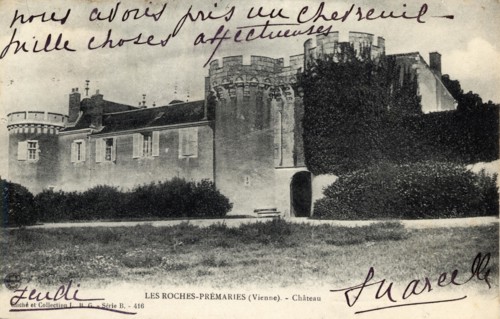 nous avons pris un chevreuil -
mille choses affectueuses
LES ROCHES-PRÉMARIES (Vienne). - Château
Jeudi
et Collection L. R. G. - Série B. - 416
Marcelle